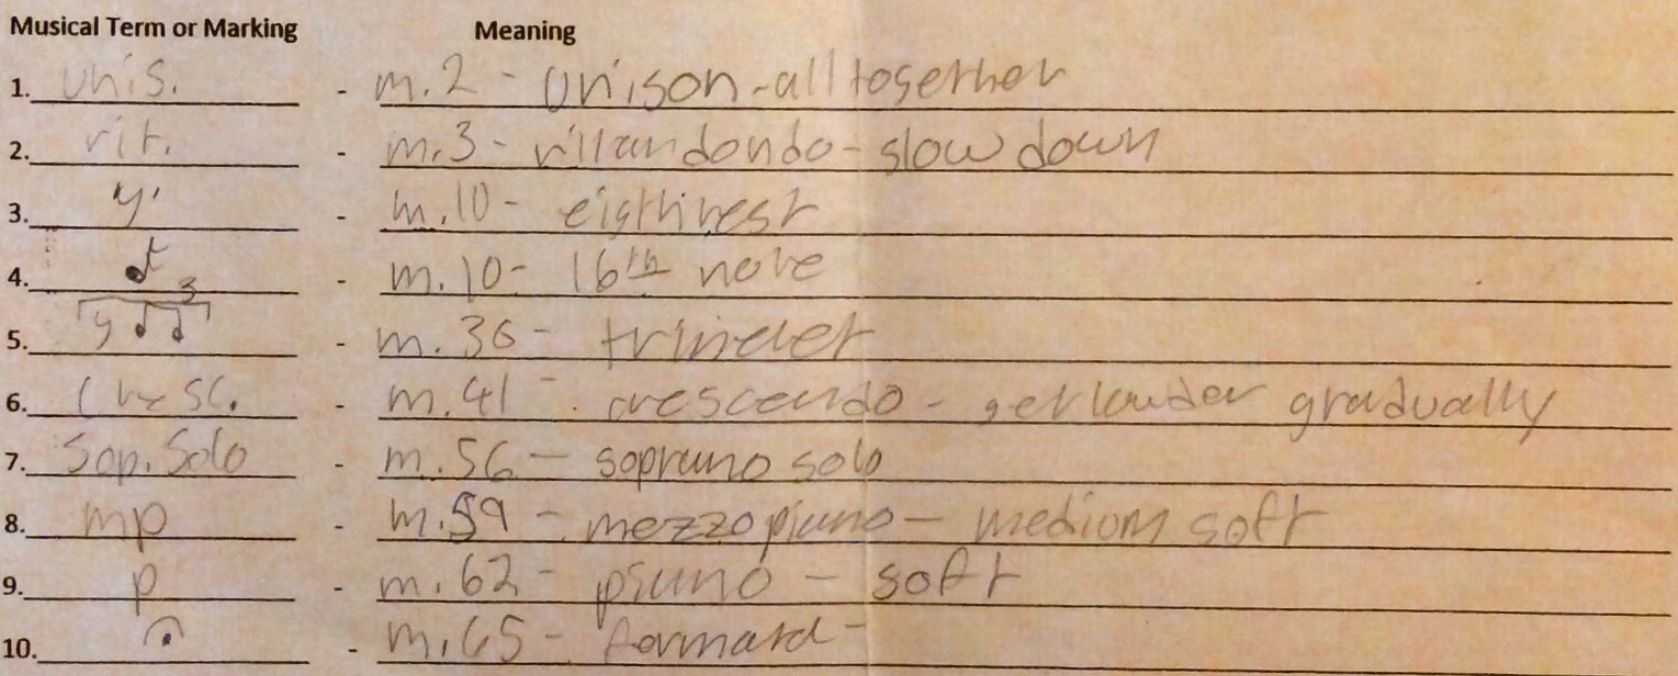 Musical Term or Marking Meaning
1. unis. - m.2 - unison - all together
2. rit. - m.3 - rillandondo - slow down
3. - m.10 - eigthrest
4. - m.10 - 16th note
5. 3 - m.36 -
6. cresc. - m.41 - crescendo - get louder gradually
7. Sop. Solo - m.56 - soprano solo
8. mp - m.59 - mezzo piano - medium soft
9. p - m.62 - piano - soft
10. - m.65 - formatd -